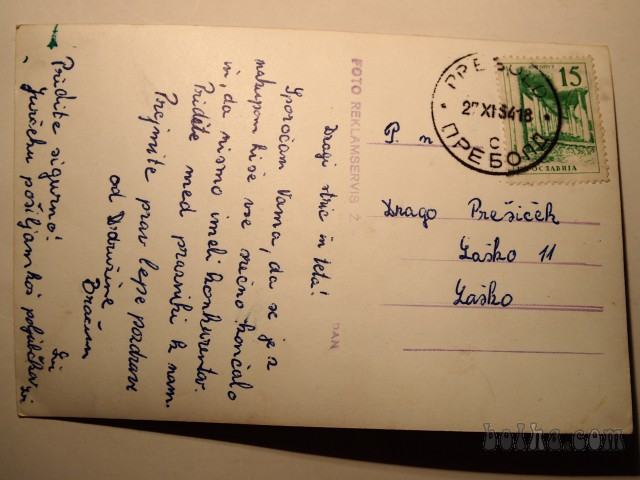 Dragi stric in teta!
Sporočam Vama, da se je z
nakupom hiše vse srečno končalo
in, da nismo imeli konkurentov.
Pridite med prazniki k nam.
Prejmite prav lepe pozdrave
od Družine
Bračun
Pridite sigurno!
Jurčku pošiljam koš poljubčkov
FOTO REKLAMSERVIS Z
DAN
P. n.
Drago Prešiček
Laško 11
Laško
ПРЕБОЛД
XI 64 18
С
15
ЈУГОСЛАВИЈА
bolha.com